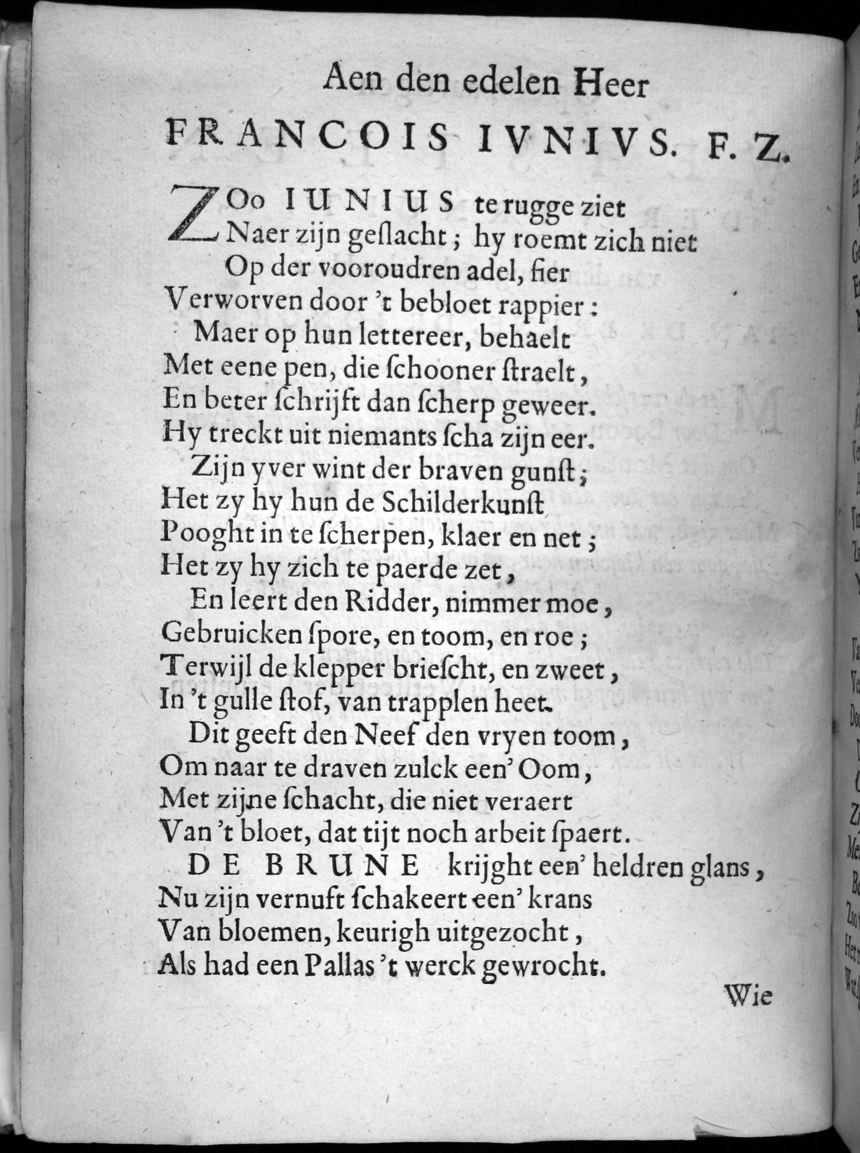 Aen den edelen Heer
FRANCOIS IVNIVS. F. Z.
ZOo IUNIUS te rugge ziet
Naer zijn geſlacht; hy roemt zich niet
Op der vooroudren adel, fier
Verworven door 't bebloet rappier:
Maer op hun lettereer, behaelt
Met eene pen, die ſchooner ſtraelt,
En beter ſchrijft dan ſcherp geweer.
Hy treckt uit niemants ſcha zijn eer.
Zijn yver wint der braven gunſt;
Het zy hy hun de Schilderkunſt
Pooght in te ſcherpen, klaer en net;
Het zy hy zich te paerde zet,
En leert den Ridder, nimmer moe,
Gebruicken ſpore, en toom, en roe;
Terwijl de klepper brieſcht, en zweet,
In 't gulle ſtof, van trapplen heet.
Dit geeft den Neef den vryen toom,
Om naar te draven zulck een' Oom,
Met zijne ſchacht, die niet veraert
Van 't bloet, dat tijt noch arbeit ſpaert.
DE BRUNE krijght een' heldren glans,
Nu zijn vernuft ſchakeert een' krans
Van bloemen, keurigh uitgezocht,
Als had een Pallas 't werck gewrocht.
Wie